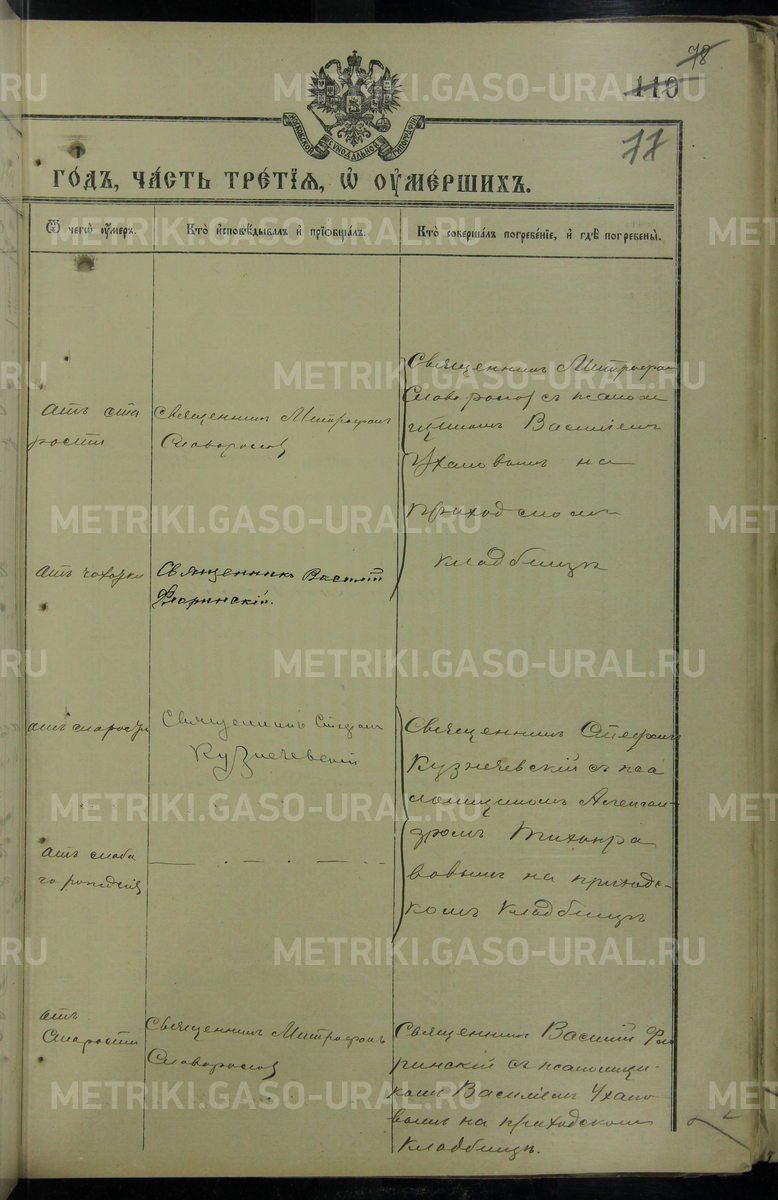 78
110
77
МОСКОВСКОЙ СѴНОДАЛЬНОЙ ТИПОГРАФІИ
ГО́ДЪ, ЧА́СТЬ ТРЕ́ТІѦ, Ѡ ОУ҆МЕ́РШИХЪ.
Ѿ чегѡ̀ оу҆́меръ.
Кто̀ и҆сповѣ́дывалъ и҆ прїѡбща́лъ.
Кто̀ соверша́лъ погребе́нїе, и҆ гдѣ̀ погребены̀.
атъ ста
рости
Священникъ Митрофанъ
Словоросовъ
Священникъ Митрофан
Словоросов съ псалом
щикомъ Василіемъ
Ухановымъ на
приходскомъ
кладбищѣ
атъ чохотки
Священникъ Василій
Флоринскій.
атъ старости
Священникъ Стефанъ
Кузнечевскій
Священникъ Стефанъ
Кузнечевскій съ пса
ломщикомъ Александ
ромъ Тихонра
вовымъ на приход-
скомъ кладбищѣ
атъ слаба
го рожденія
атъ
Старости
Священникъ Митрофанъ
Словоросовъ
Священникъ Василій Фло
ринскій съ псаломщи-
комъ Василіем Ухано
вымъ на приходскомъ
кладбищѣ.
METRIKI.GASO-URAL.RU